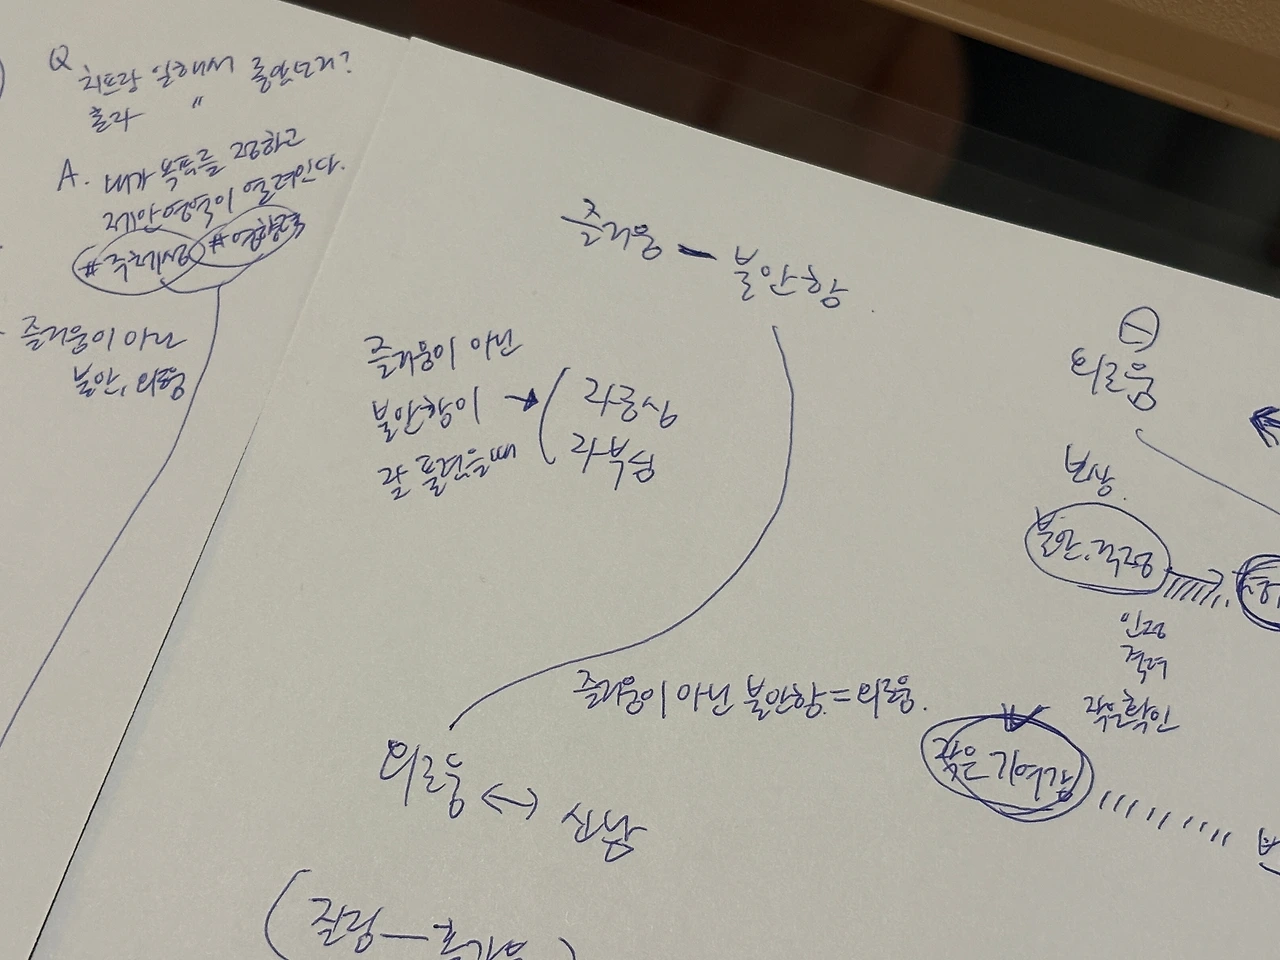 Q 치프랑 일해서 좋았느지?
혼자 "
A. 내가 목표를 정하고
제안영역이 열려있다.
#주체성 #영향력
즐거움이 아닌
불안, 외로움
즐거움 - 불안함.
즐거움이 아닌
불안함이 → 자긍심
잘 풀렸을때 자부심
외로움
보상.
불안.걱정
인정
격려
작은확인
즐거움이 아닌 불안함 = 외로움.
작은 기여감
외로움 ↔ 신남